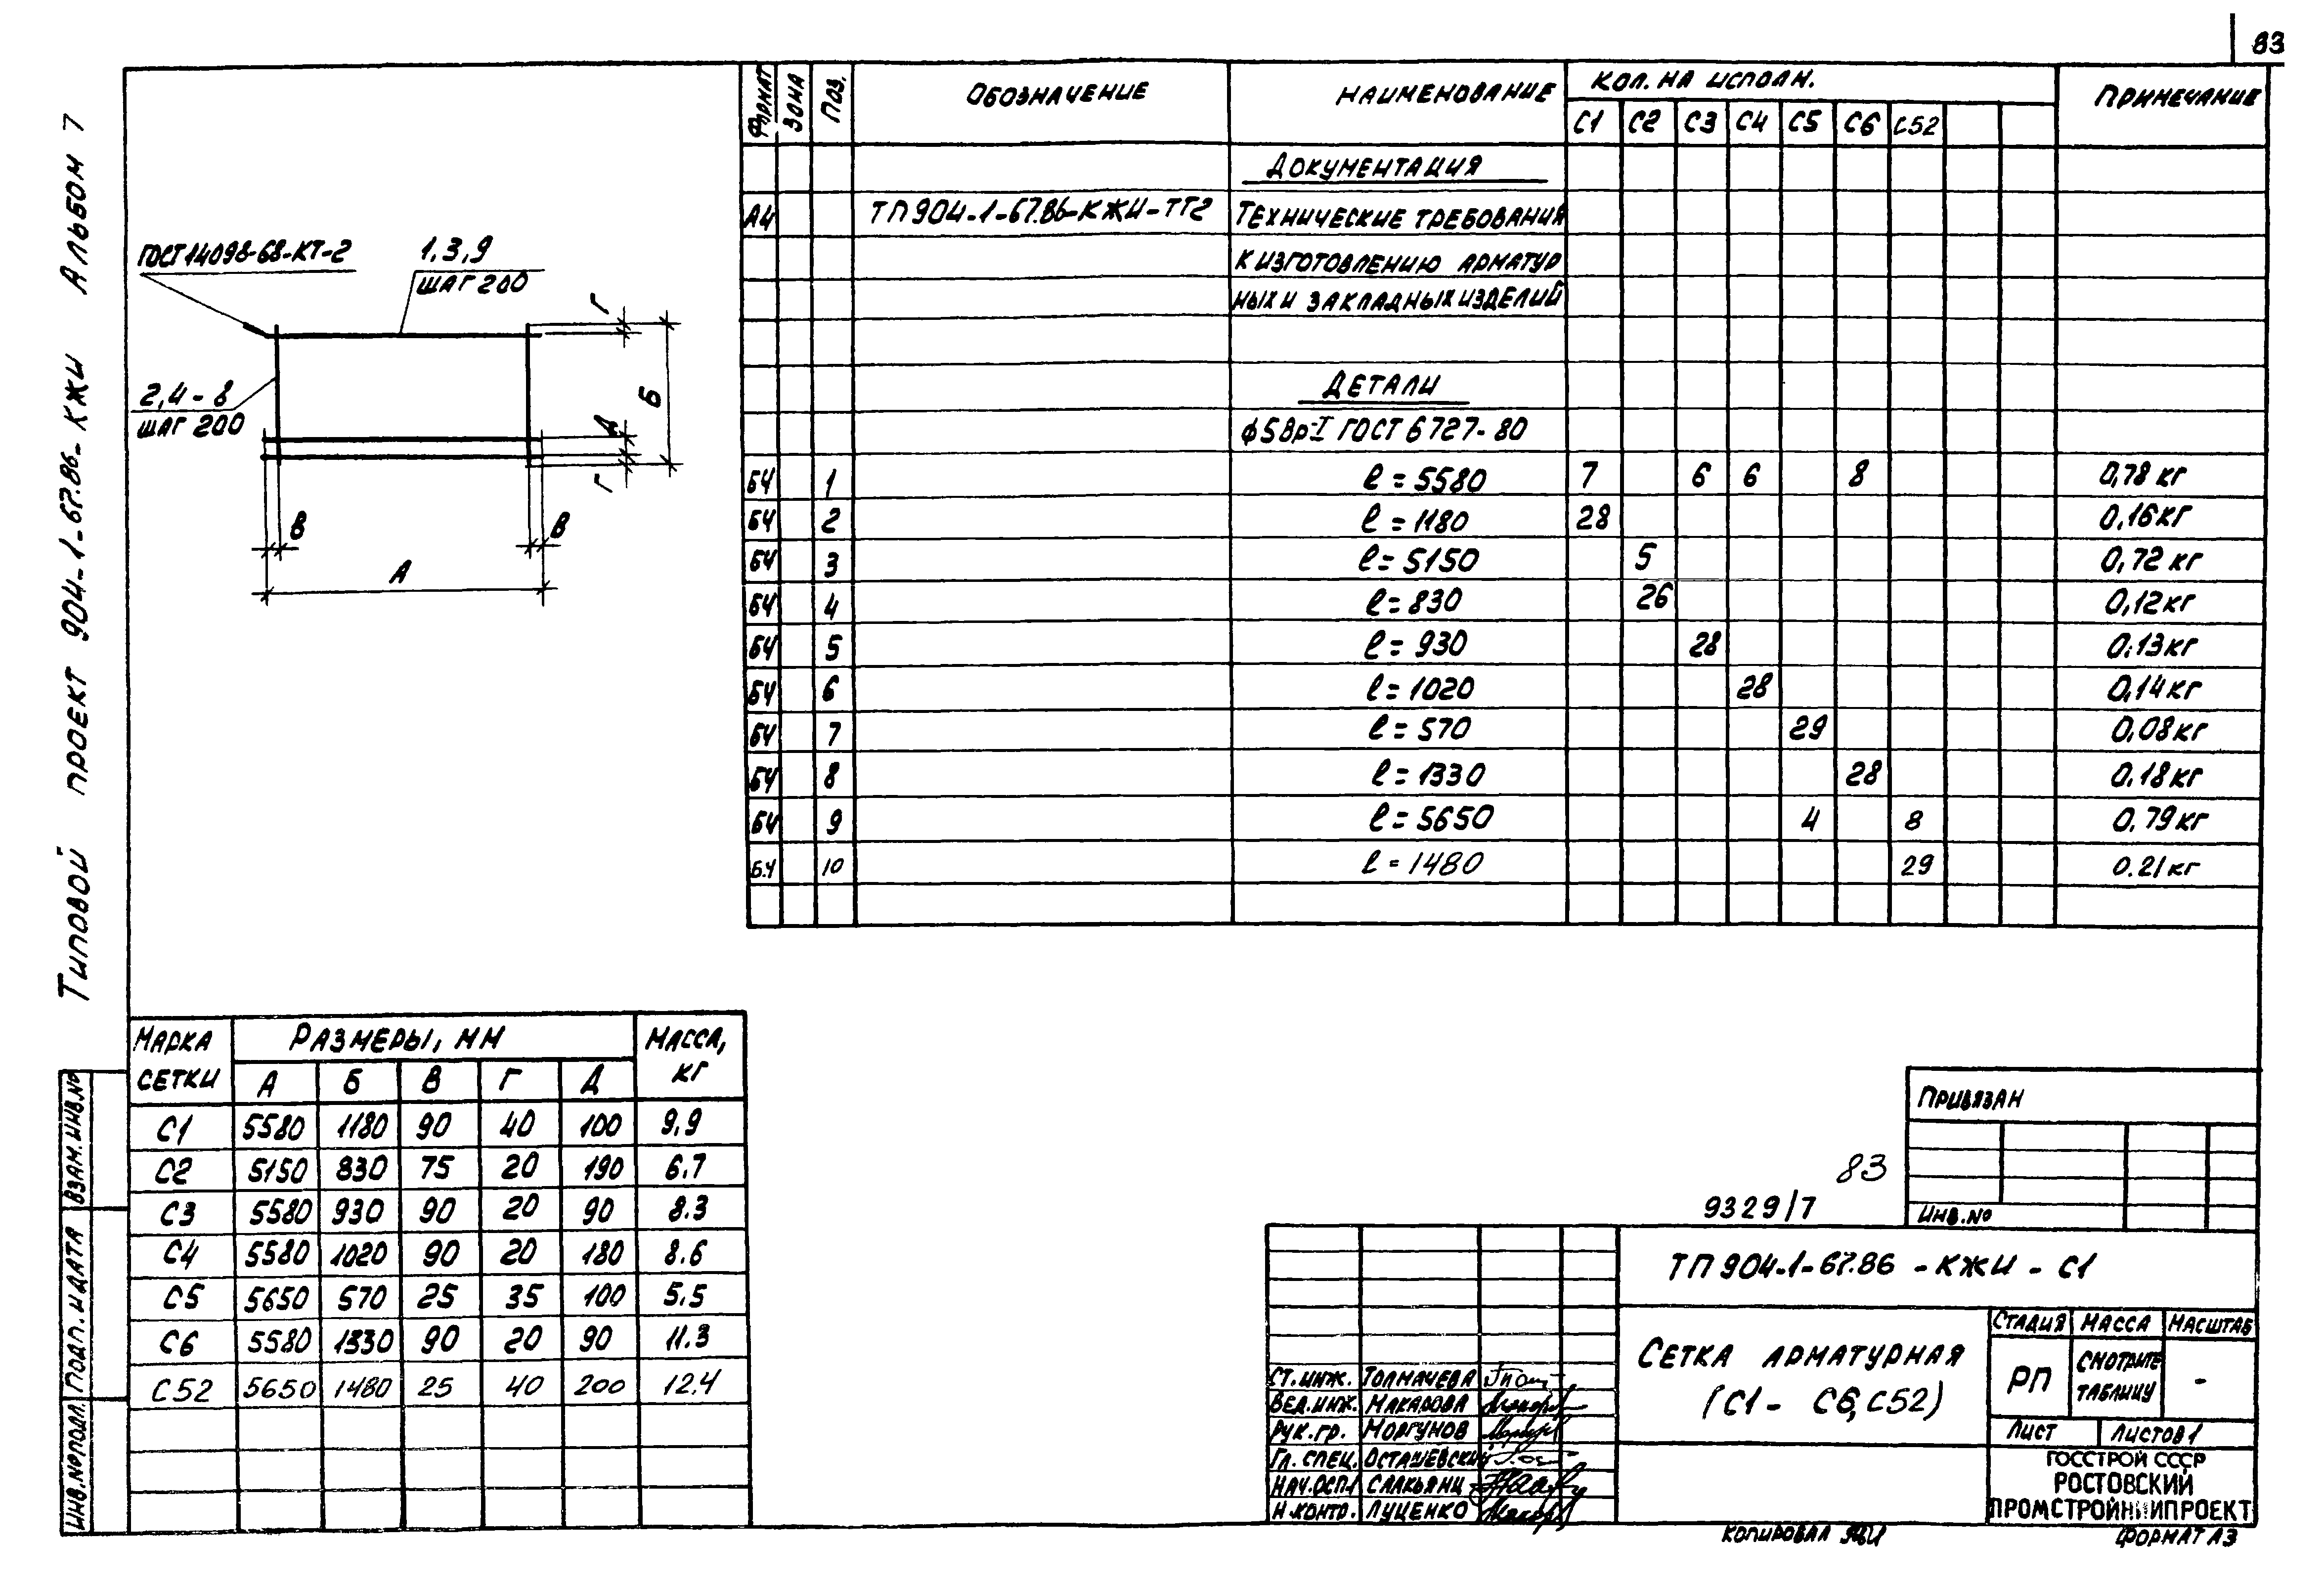 83
Типовой проект 904-1-67.86-КЖИ Альбом 7
ГОСТ 14098-68-КТ-2
1,3,9
ШАГ 200
2,4-8
ШАГ 200
Г
Б
Д
Г
В
В
А
Формат Зона Поз. Обозначение Наименование Кол. на исполн. Примечание
С1 С2 С3 С4 С5 С6 С52
Документация
А4 ТП 904-1-67.86-КЖИ-ТТ2 Технические требования
к изготовлению арматур
ных и закладных изделий
Детали
ф5Вр-I ГОСТ 6727-80
БЧ 1 ℓ=5580 7 6 6 8 0,78 кг
БЧ 2 ℓ=1180 28 0,16 кг
БЧ 3 ℓ=5150 5 0,72 кг
БЧ 4 ℓ=830 26 0,12 кг
БЧ 5 ℓ=930 28 0.13 кг
БЧ 6 ℓ=1020 28 0,14 кг
БЧ 7 ℓ=570 29 0,08 кг
БЧ 8 ℓ=1330 28 0.18 кг
БЧ 9 ℓ=5650 4 8 0.79 кг
Б.Ч 10 ℓ=1480 29 0.21 кг
Марка сетки Размеры, мм Масса, кг
А Б В Г Д
С1 5580 1180 90 40 100 9,9
С2 5150 830 75 20 190 6.7
С3 5580 930 90 20 90 8.3
С4 5580 1020 90 20 180 8.6
С5 5650 570 25 35 100 5.5
С6 5580 1330 90 20 90 11.3
С52 5650 1480 25 40 200 12.4
Взам. инв. №
Подп. и дата
Инв. № подл.
Привязан
Инв. №
83
9329/7
ТП 904-1-67.86-КЖИ-С1
Сетка арматурная
(С1- С6, С52)
Стадия Масса Масштаб
РП Смотрите таблицу -
Лист Листов 1
Ст. инж. Толмачева
Вед. инж. Макарова
Рук. гр. Моргунов
Гл. спец. Осташевский
Нач. ОСП1 Саакьянц
Н. контр. Луценко
ГОССТРОЙ СССР
РОСТОВСКИЙ
ПРОМСТРОЙНИИПРОЕКТ
Копировал
Формат А3